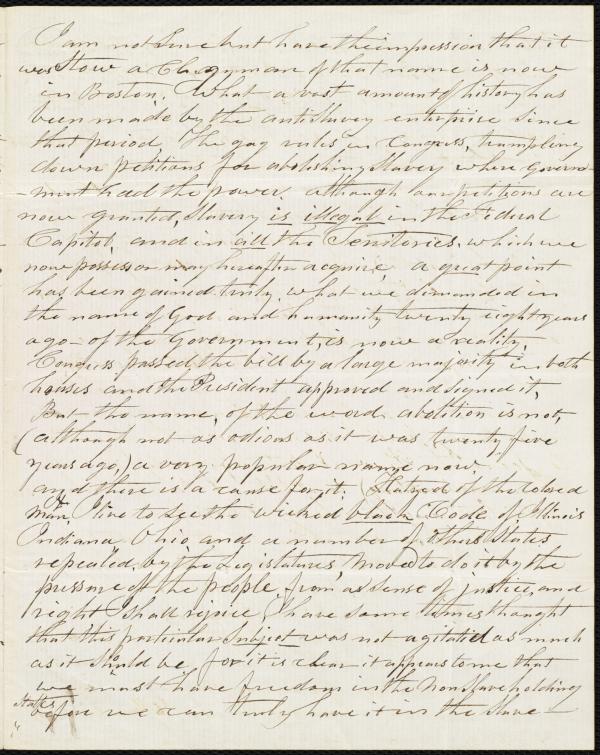 I am not sure but have the impression that it
was Stow a Clergyman of that name is now
in Boston, What a vast amount of history has
been made by the antislavery enterprise since
that period, The gag rules in Congress, trampling
down petitions for abolishing Slavery where Govern-
-ment had the power. although our petitions are
now granted, Slavery is illegal in the Federal
Capitol, and in all the Territories, which we
now possess or may hereafter acquire, a great point
has been gained truly. what we demanded in
the name of God and humanity twenty eight years
ago - of the Government, is now a reality,
Congress passed the bill by a large majority in both
houses and the President approved and signed it,
But the name, of the word abolition is not,
(although not as odious as it was twenty five
years ago,) a very popular name now.
and there is a cause for it. (Hatred of the Colored
man. If I live to see the wicked black Code of Illinois
Indiana Ohio and a number of other States
repealed, by the Legislatures, moved to do it by the
pressure of the people, from a sense of justice, and
right I shall rejoice, I have some times thought
that this particular Subject was not agitated as much
as it should be, for it is clear it appears to me that
we must have freedom in the Non Slaveholding
States before we can truly have it in the Slave -